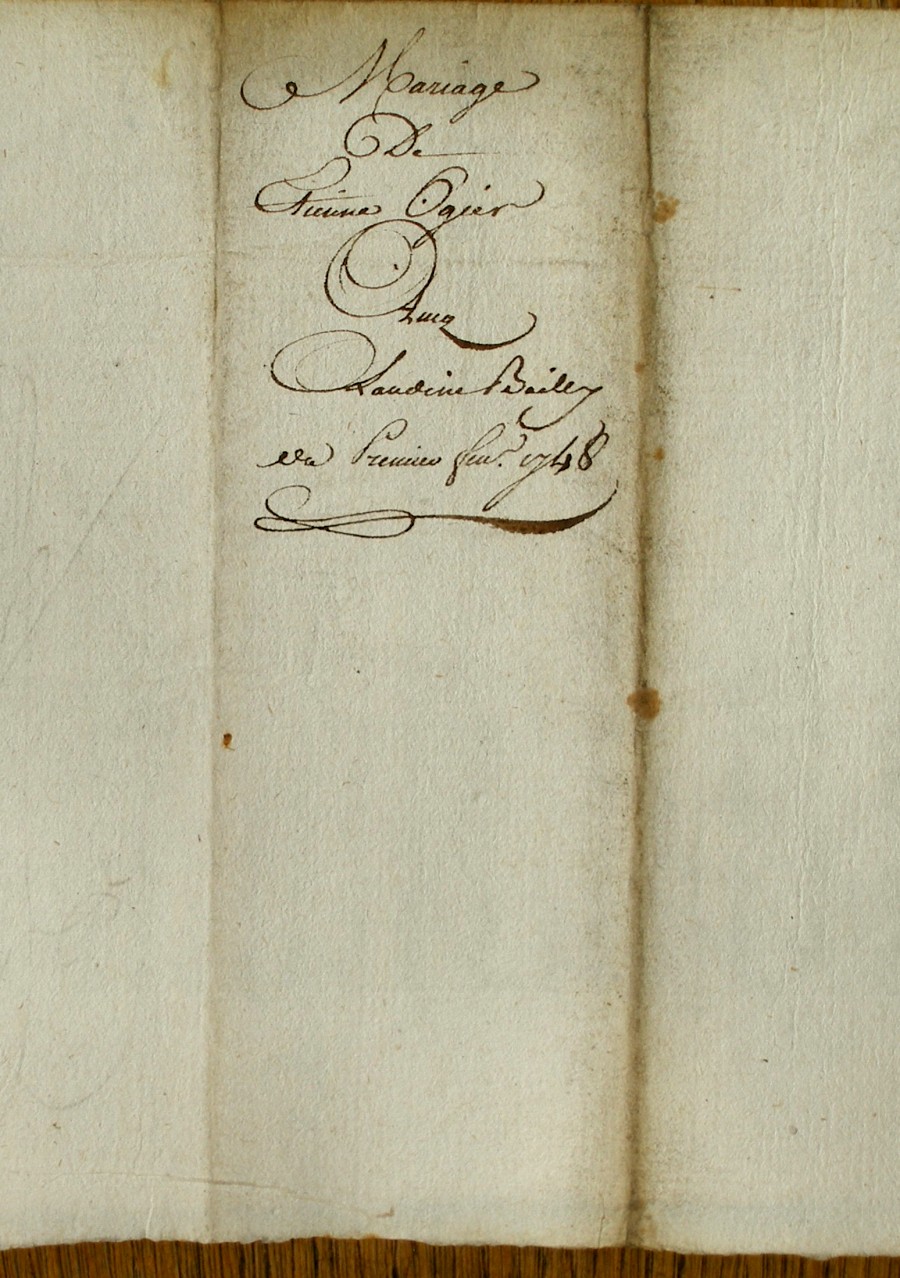 Mariage
De
Etienne Ogier
Avecq
Claudine Bailly
Du Premier fevr. 1748